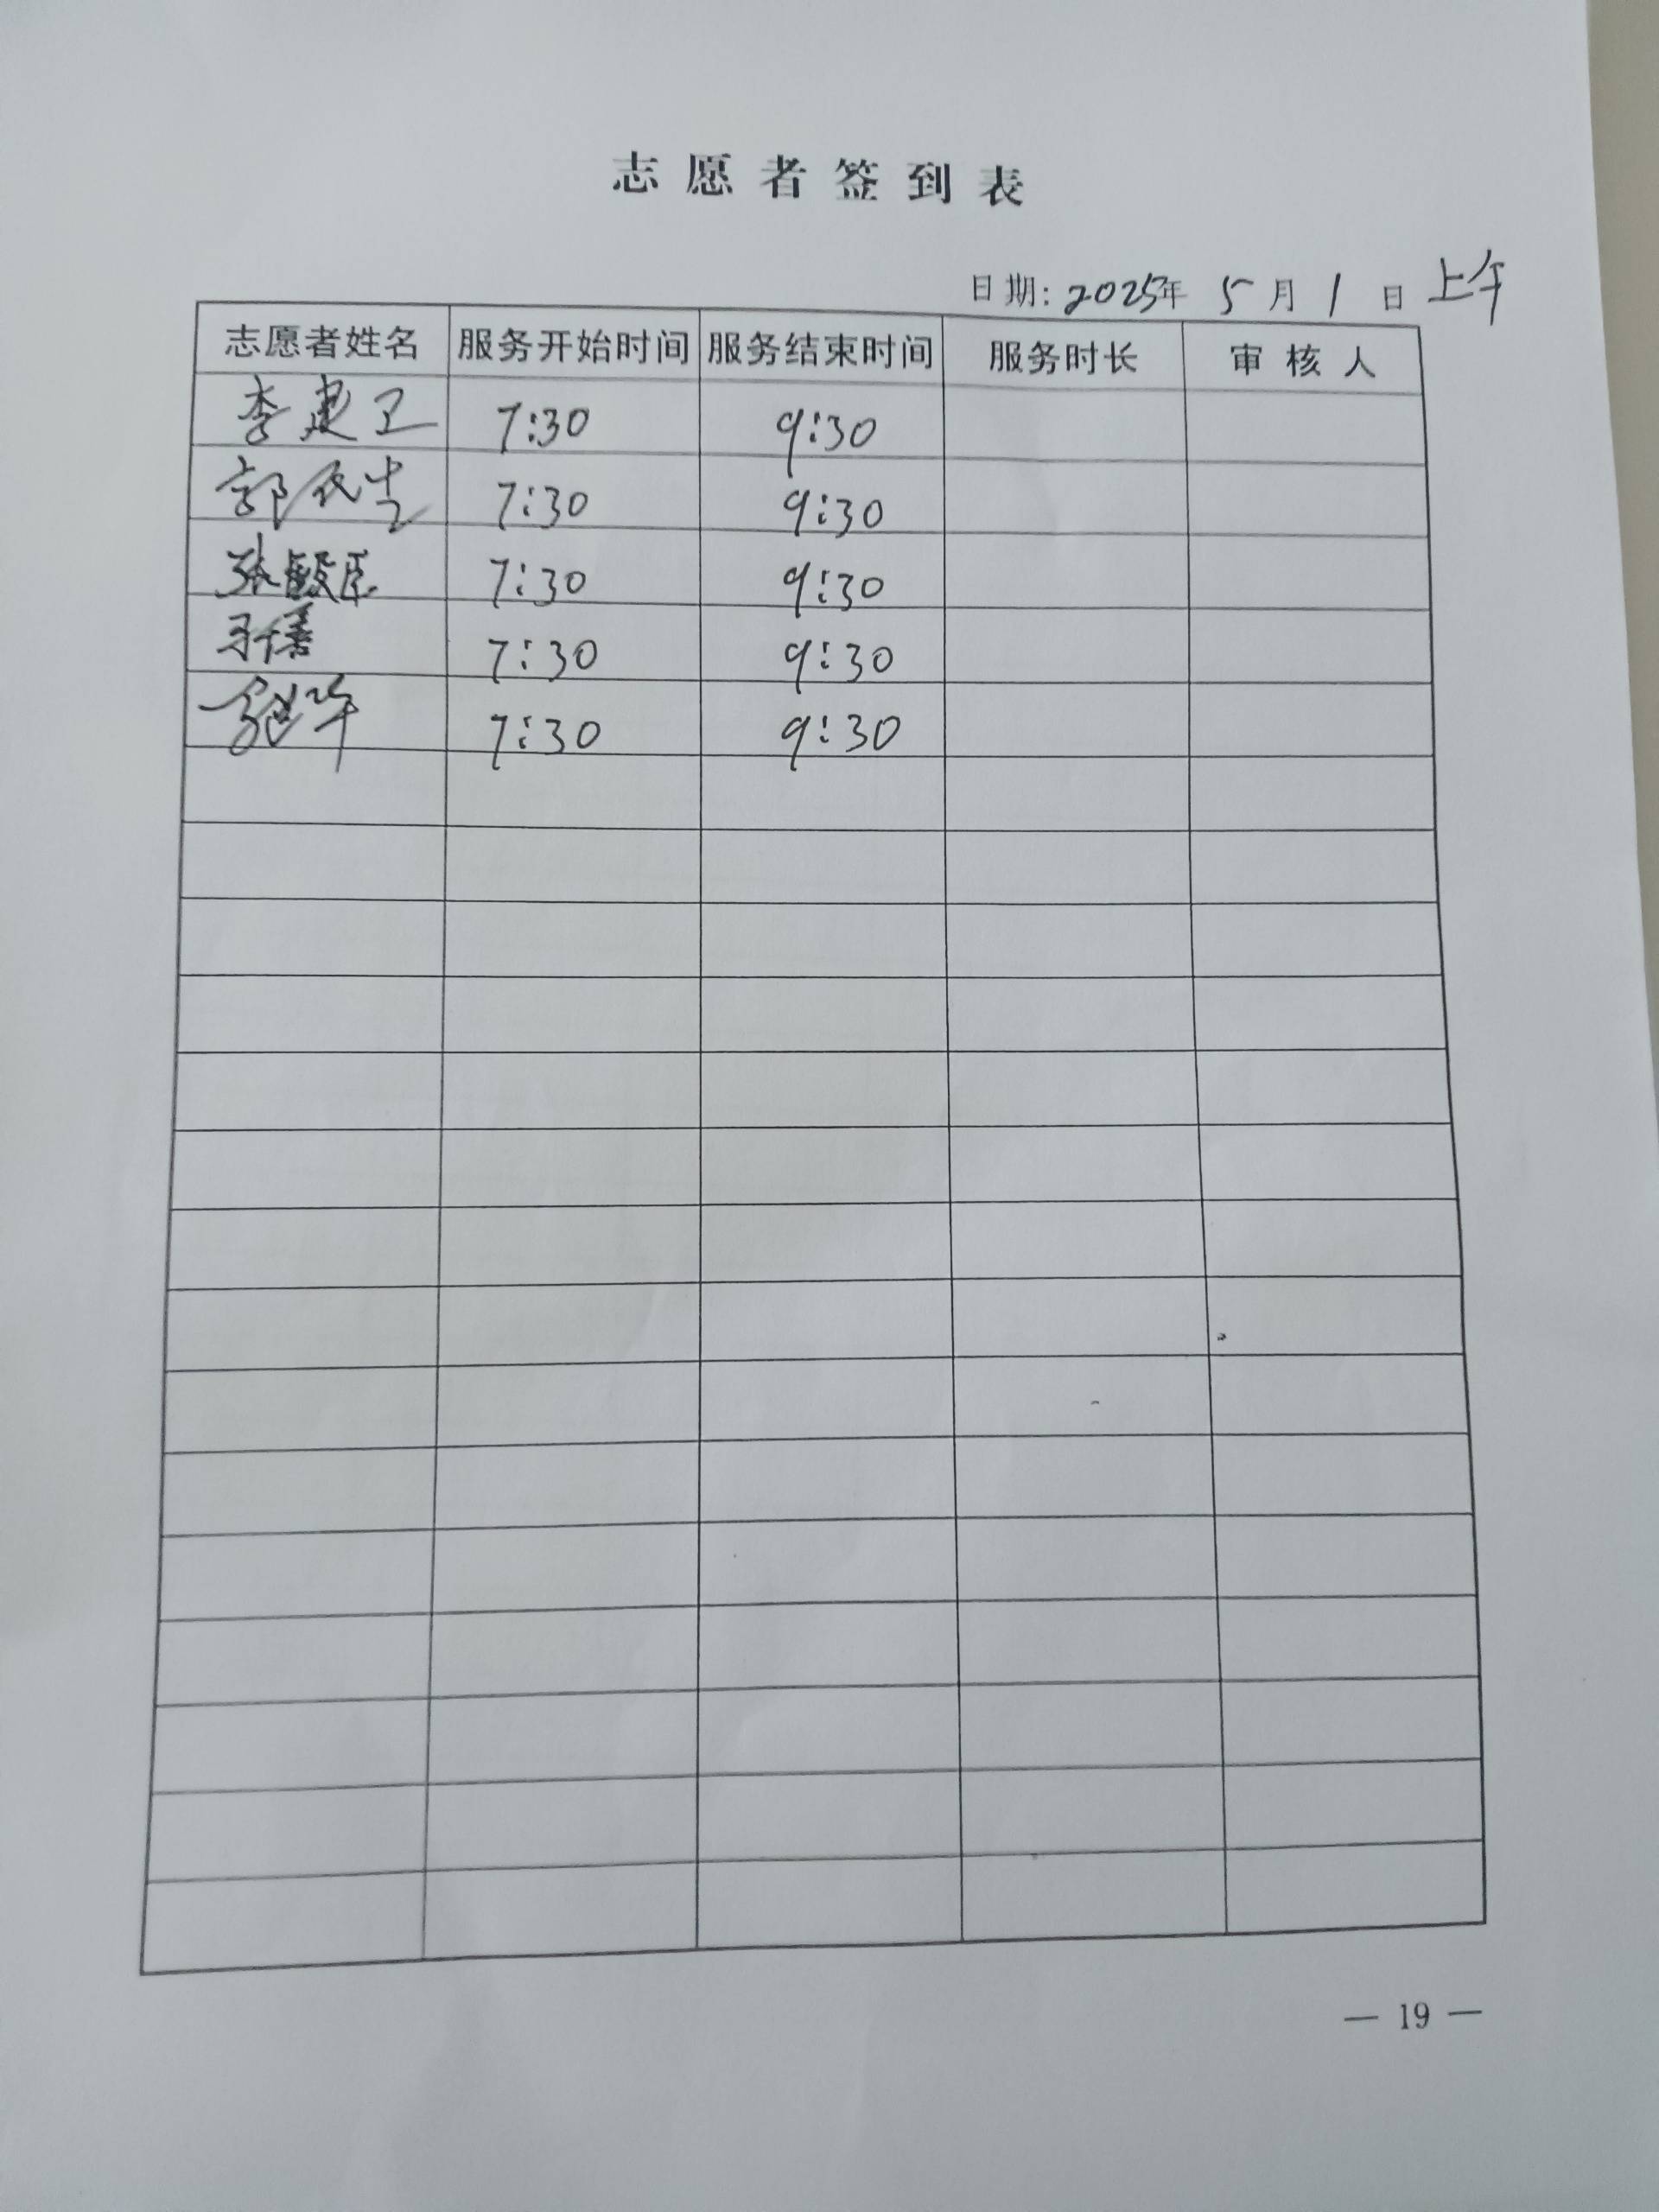 志愿者签到表
日期：2025年 5月1日 上午
志愿者姓名 服务开始时间 服务结束时间 服务时长 审核人
李建卫 7:30 9:30
郭 7:30 9:30
张毅臣 7:30 9:30
7:30 9:30
7:30 9:30
— 19 —